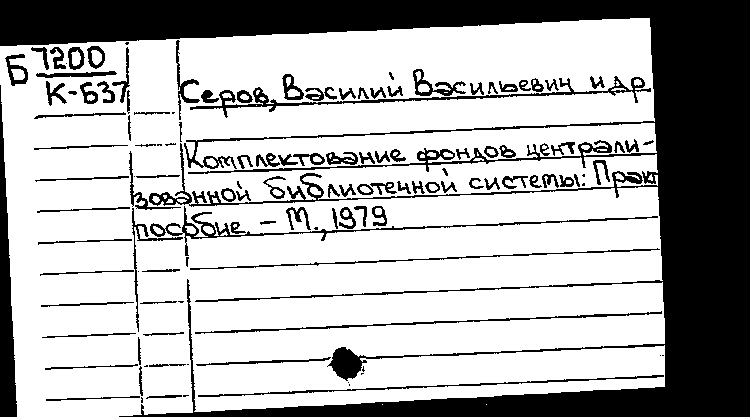 Б 7200
К-Б37
Серов, Василий Васильевич и др
Комплектование фондов централи-
зованной библиотечной системы: Практ
пособие. - М., 1979.